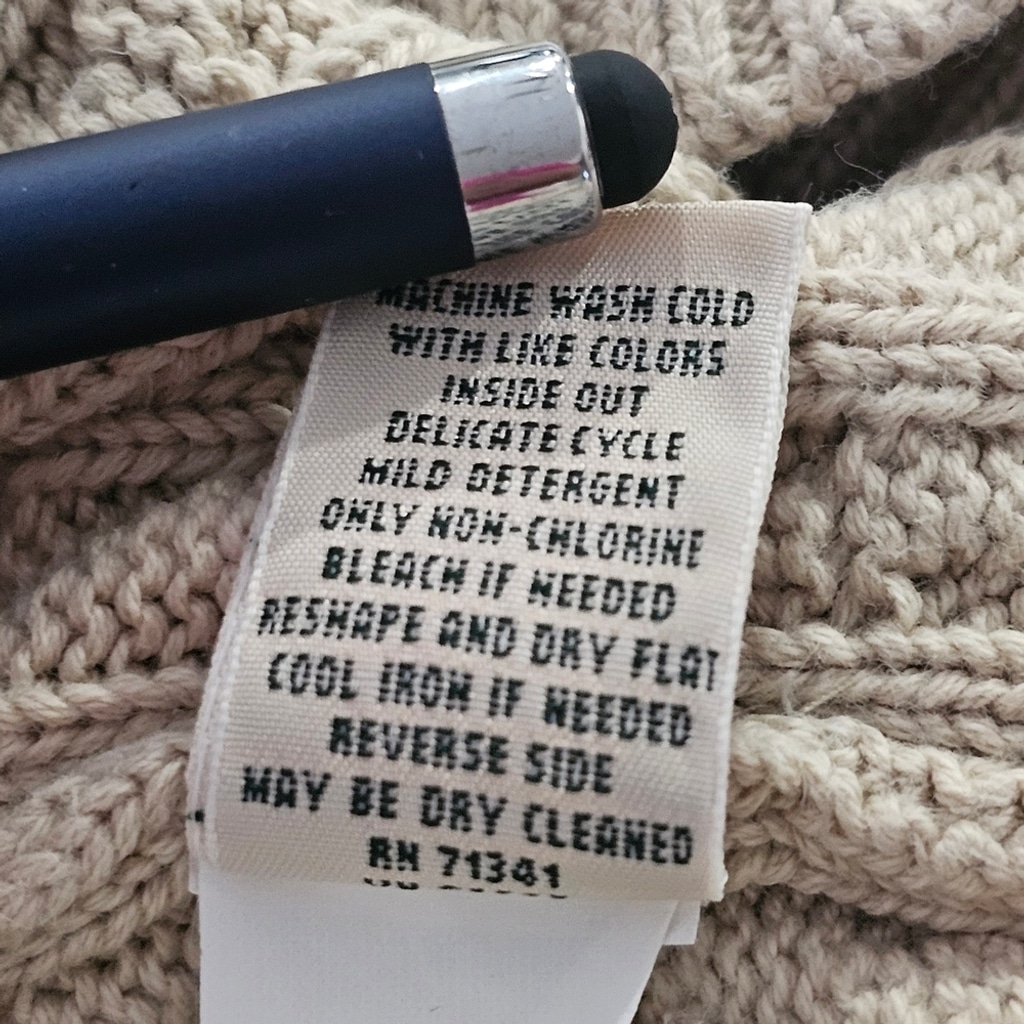 MACHINE WASH COLD
WITH LIKE COLORS
INSIDE OUT
DELICATE CYCLE
MILD DETERGENT
ONLY NON-CHLORINE
BLEACH IF NEEDED
RESHAPE AND DRY FLAT
COOL IRON IF NEEDED
REVERSE SIDE
MAY BE DRY CLEANED
RN 71341